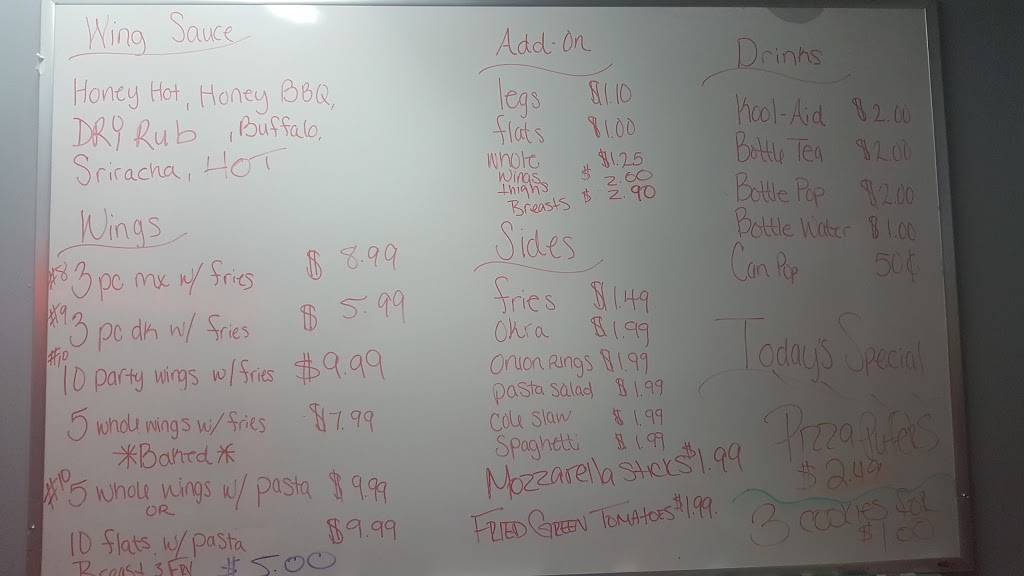 Wing Sauce
Honey Hot, Honey BBQ,
DRY Rub, Buffalo,
Sriracha, HOT
Wings
#8 3 pc mx w/ fries $ 8.99
#9 3 pc dk w/ fries $ 5.99
#10 10 party wings w/ fries $9.99
5 whole wings w/ fries $7.99
*Baked*
#10 5 whole wings w/ pasta $9.99
OR
10 flats w/ pasta $9.99
Breast $5.00
Add-On
legs $1.10
flats $1.00
whole wings $1.25
thighs $ 2.00
Breasts $ 2.90
Sides
fries $1.49
Okra $1.99
Onion Rings $1.99
pasta salad $1.99
Cole Slaw $1.99
Spaghetti $1.99
Mozzarella Sticks $1.99
FRIED GREEN TOMATOES $1.99
Drinks
Kool-Aid $2.00
Bottle Tea $2.00
Bottle Pop $2.00
Bottle Water $1.00
Can Pop 50¢
Today's Special
Pizza Puffers
$2.49
3 cookies for
$1.00